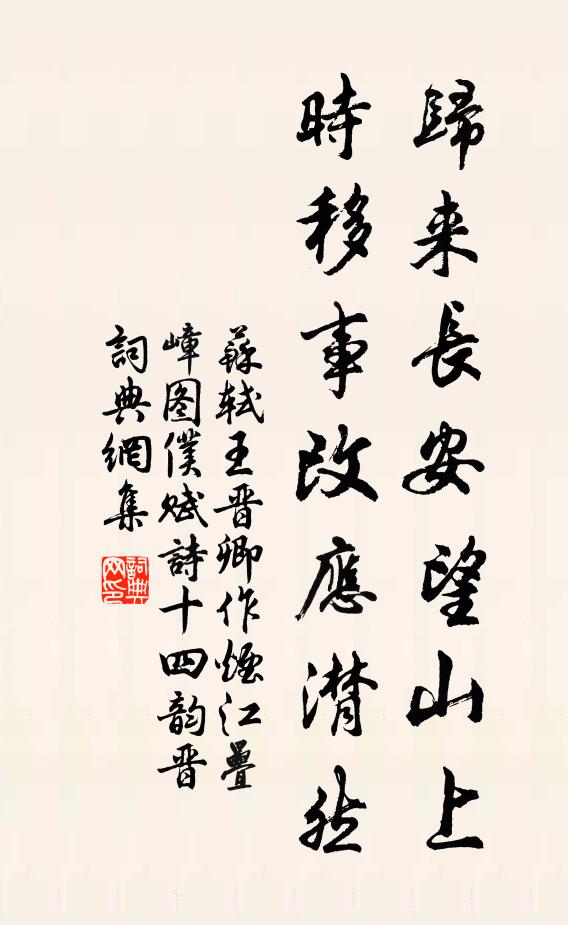 歸来長安望山上
時移事改應潸然
蘇軾王晋卿作煙江疊
嶂图僕赋詩十四韵晋
詞典網集
詞典网印